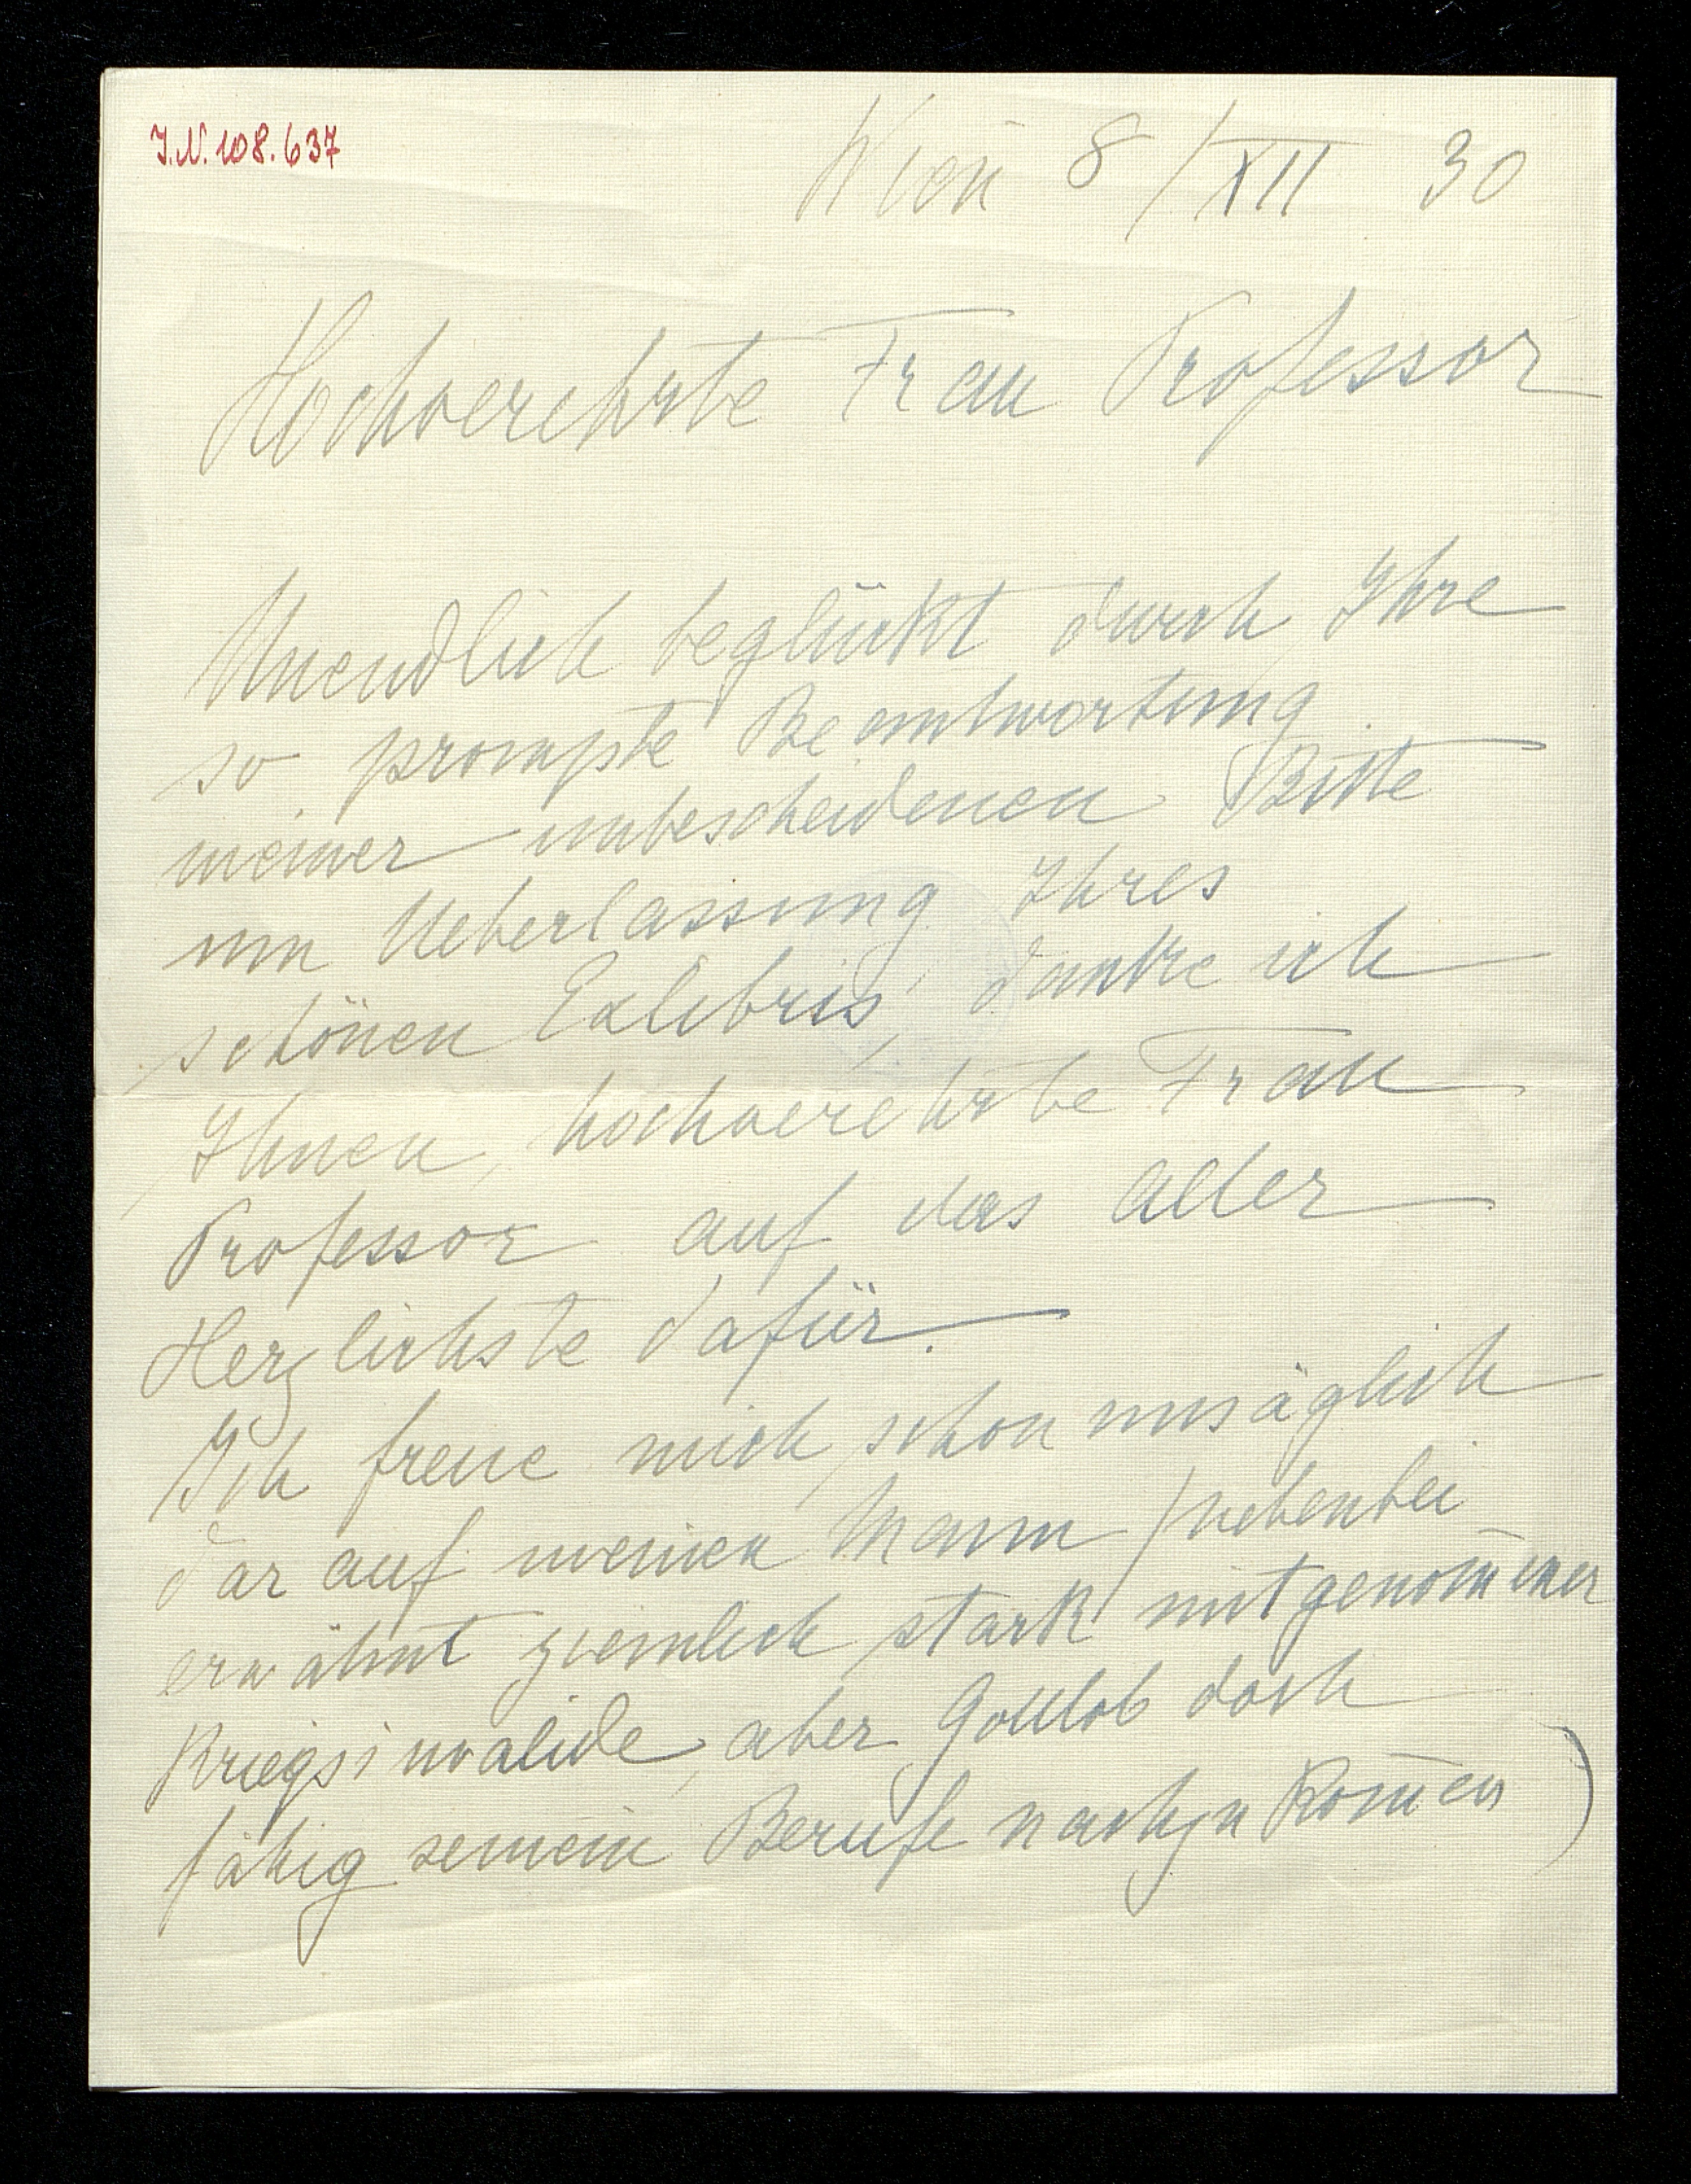 J.N. 108.637
Wien 8/XII 30
Hochverehrte Frau Professor
Unendlich beglückt durch Ihre
so prompte Beantwortung
meiner unbescheidenen Bitte
um Ueberlassung Ihres
schönen Exlibris, danke ich
Ihnen, hochverehrte Frau
Professor auf das aller
Herzlichste dafür.
Ich freue mich schon unsäglich
darauf meinen Mann / nebenbei
erwähnt ziemlich stark mitgenom̄ener
Kriegsinvalide, aber Gottlob doch
fähig seinem Berufe nachzukom̄en)